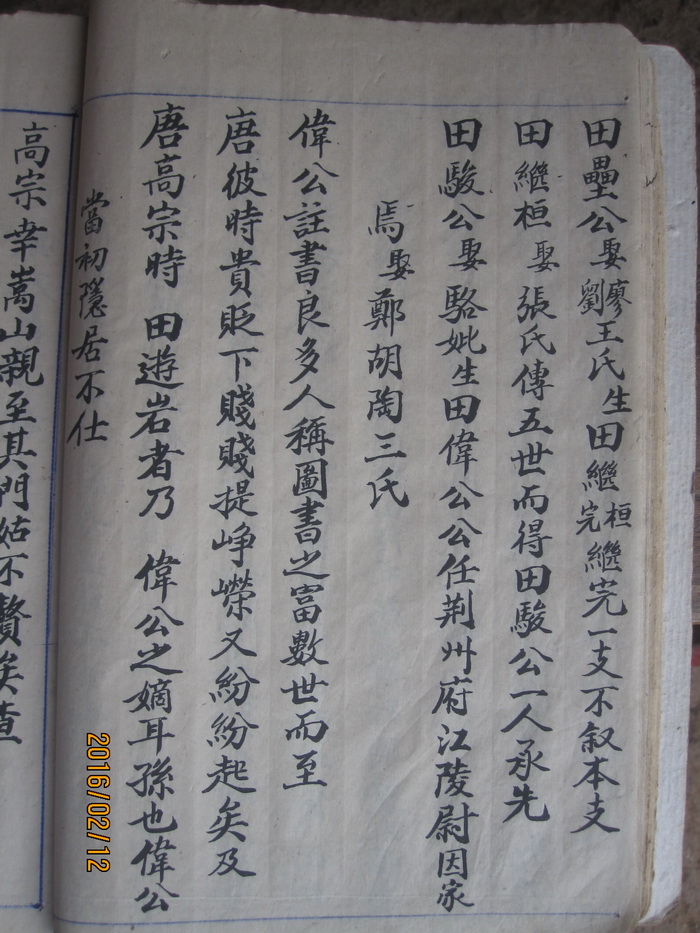 田壘公娶廖劉王氏生田繼桓繼完繼完一支不叙本支
田繼桓娶張氏傳五世而得田駿公一人承先
田駿公娶駱妣生田偉公公任荆州府江陵尉因家
焉娶鄭胡陶三氏
偉公註書良多人稱圖書之富數世而至
唐彼時貴貶下賤賤提崢嶸又紛紛起矣及
唐高宗時 田遊岩者乃 偉公之嫡耳孫也偉公
當初隱居不仕
高宗幸嵩山親至其門姑不贅矣查
2016/02/12